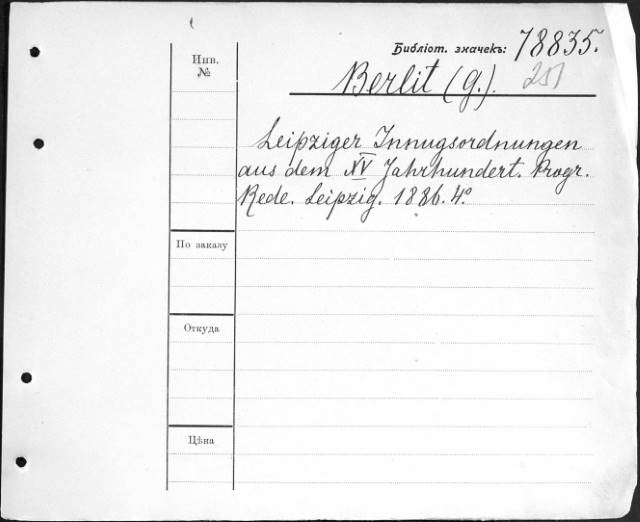 Библіот. значекъ: 78835.
Инв. №
Berlit (G.). 251
Leipziger Innugsordnungen
aus dem XV Jahrhundert. Progr.
Rede. Leipzig. 1886. 4°
По заказу
Откуда
Цѣна